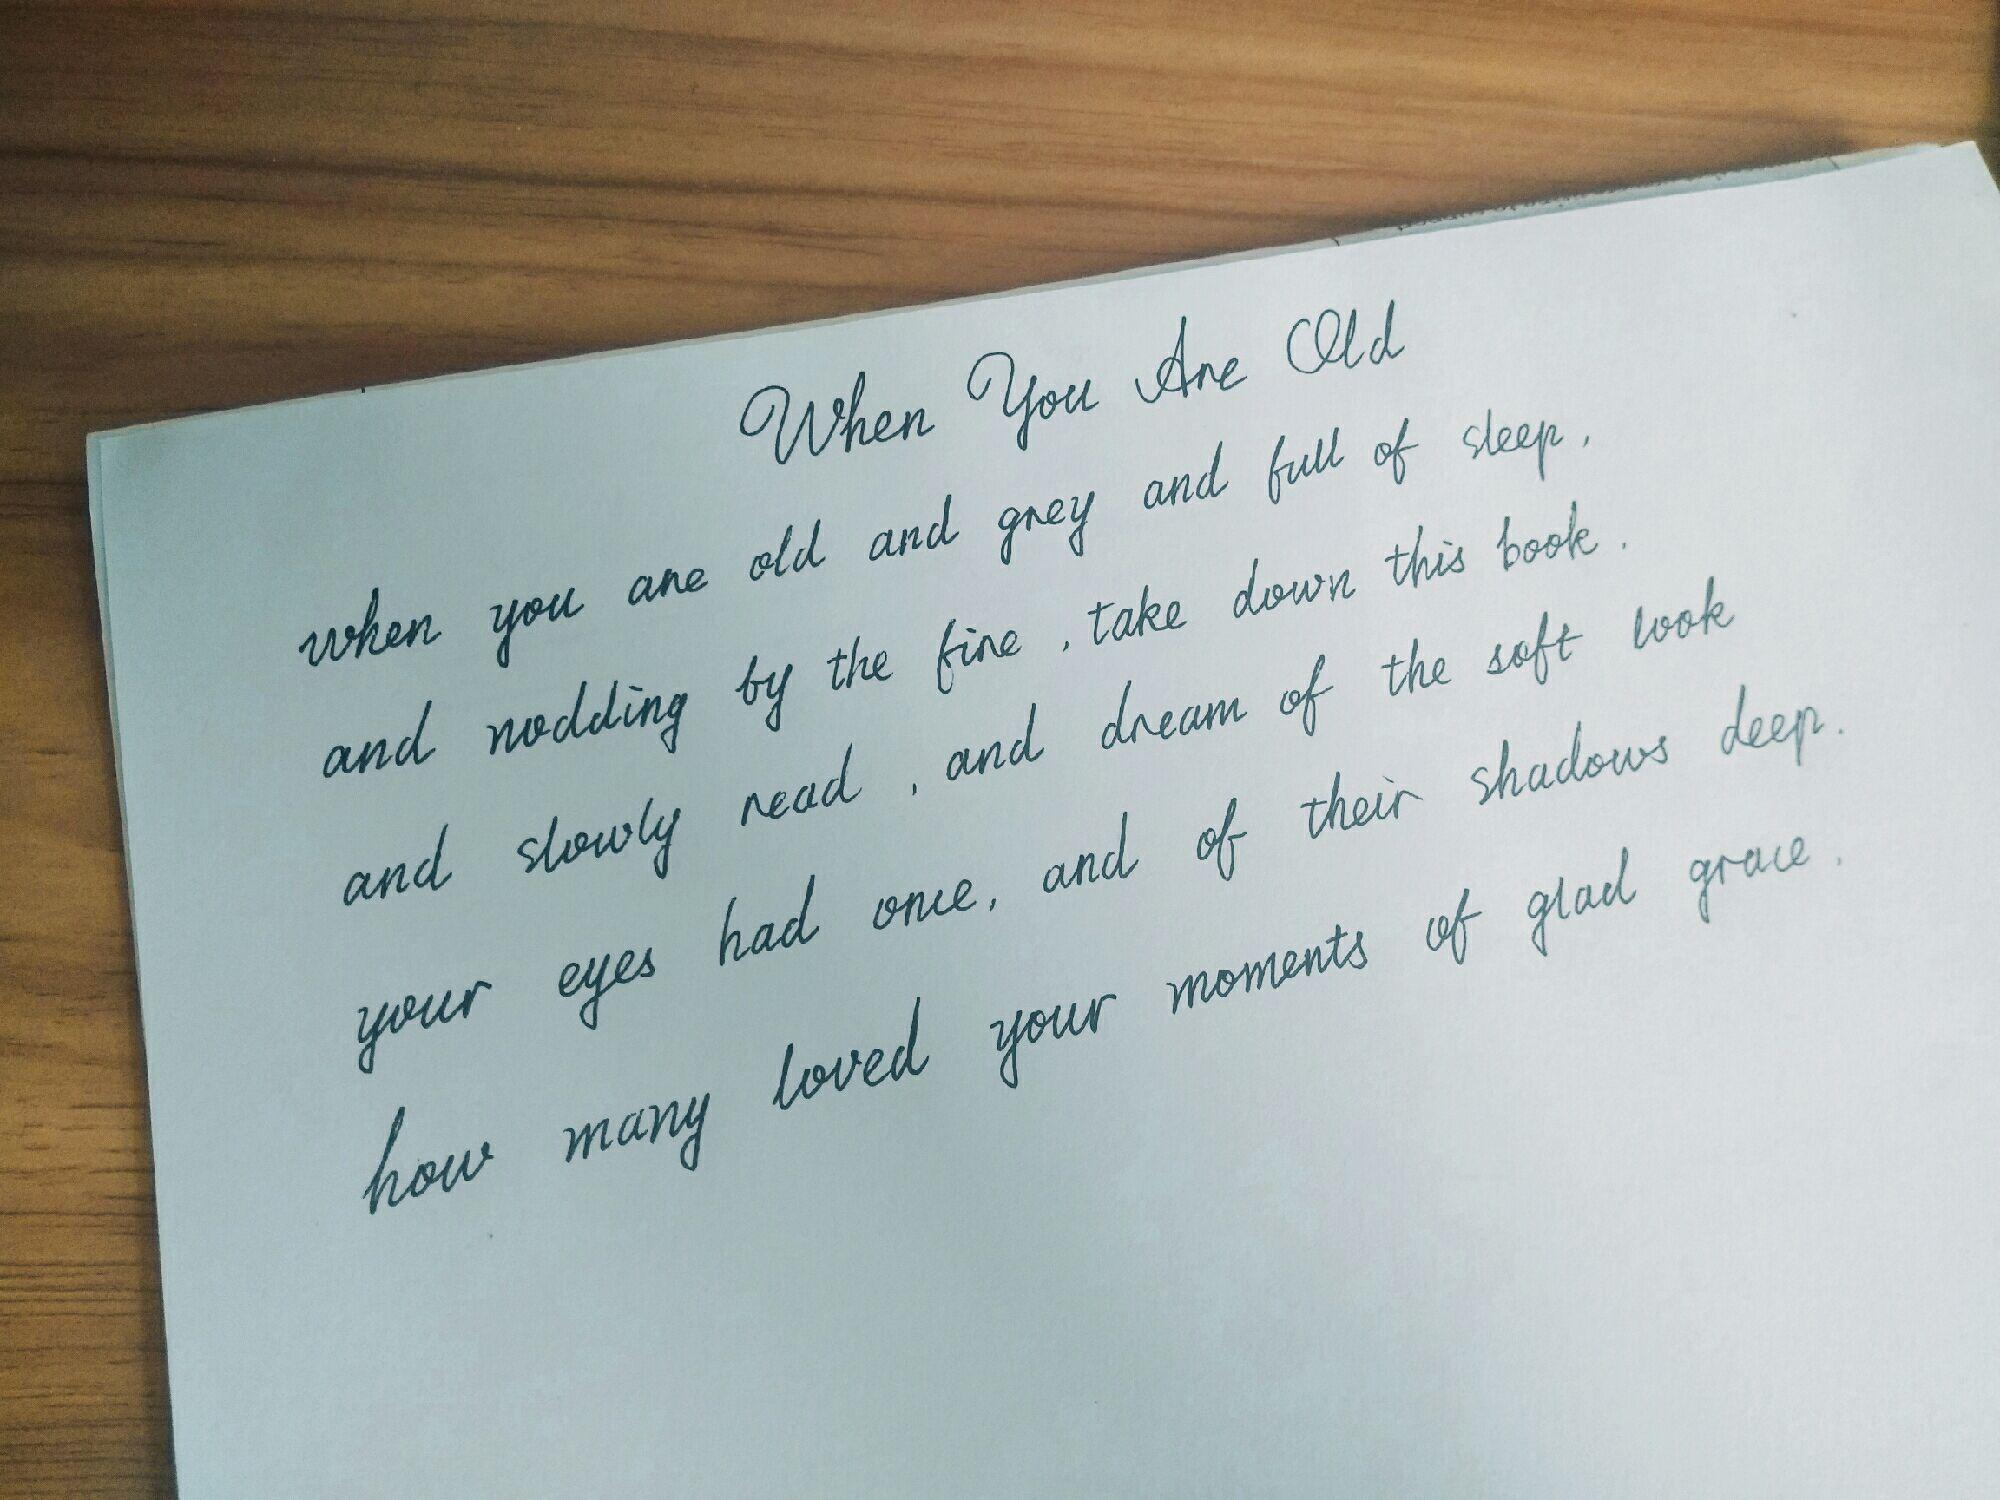 When You Are Old
when you are old and grey and full of sleep,
and nodding by the fire, take down this book.
and slowly read, and dream of the soft look
your eyes had once, and of their shadows deep.
how many loved your moments of glad grace.